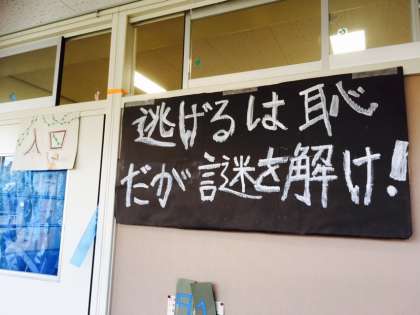 逃げるは恥
だが謎を解け!
入口